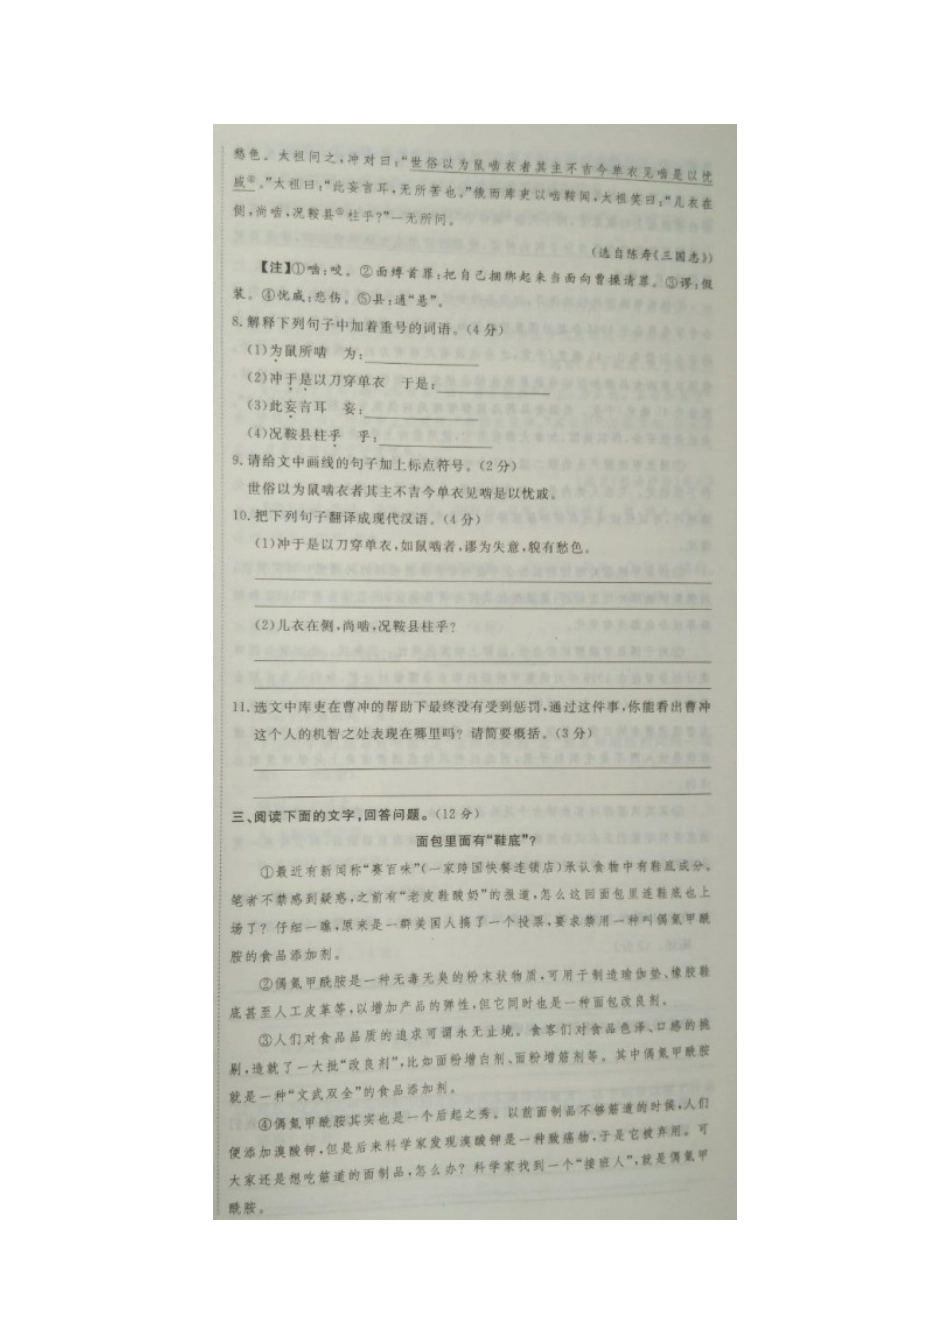 愁色。太祖问之，冲对曰：“世俗以为鼠啮衣者其主不吉今单衣见啮是以忧
戚④。”太祖曰：“此妄言耳，无所苦也。”俄而库吏以啮鞍闻，太祖笑曰：“儿衣在
侧，尚啮，况鞍县⑤柱乎？”一无所问。
(选自陈寿《三国志》)
【注】①啮：咬。②面缚首罪：把自己捆绑起来当面向曹操请罪。③谬：假
装。④忧戚：悲伤。⑤县：通“悬”。
8.解释下列句子中加着重号的词语。(4分)
(1)为鼠所啮　为：
(2)冲于是以刀穿单衣　于是：
(3)此妄言耳　妄：
(4)况鞍县柱乎　乎：
9.请给文中画线的句子加上标点符号。(2分)
世俗以为鼠啮衣者其主不吉今单衣见啮是以忧戚。
10.把下列句子翻译成现代汉语。(4分)
(1)冲于是以刀穿单衣，如鼠啮者，谬为失意，貌有愁色。
(2)儿衣在侧，尚啮，况鞍县柱乎？
11.选文中库吏在曹冲的帮助下最终没有受到惩罚，通过这件事，你能看出曹冲
这个人的机智之处表现在哪里吗？请简要概括。(3分)
三、阅读下面的文字，回答问题。(12分)
面包里面有“鞋底”？
①最近有新闻称“赛百味”(一家跨国快餐连锁店)承认食物中有鞋底成分。
笔者不禁感到疑惑，之前有“老皮鞋酸奶”的报道，怎么这回面包里连鞋底也上
场了？仔细一瞧，原来是一群美国人搞了一个投票，要求禁用一种叫偶氮甲酰
胺的食品添加剂。
②偶氮甲酰胺是一种无毒无臭的粉末状物质，可用于制造瑜伽垫、橡胶鞋
底甚至人工皮革等，以增加产品的弹性，但它同时也是一种面包改良剂。
③人们对食品品质的追求可谓永无止境。食客们对食品色泽、口感的挑
剔，造就了一大批“改良剂”，比如面粉增白剂、面粉增筋剂等。其中偶氮甲酰胺
就是一种“文武双全”的食品添加剂。
④偶氮甲酰胺其实也是一个后起之秀。以前面制品不够筋道的时候，人们
便添加溴酸钾，但是后来科学家发现溴酸钾是一种致癌物，于是它被弃用。可
大家还是想吃筋道的面制品，怎么办？科学家找到一个“接班人”，就是偶氮甲
酰胺。